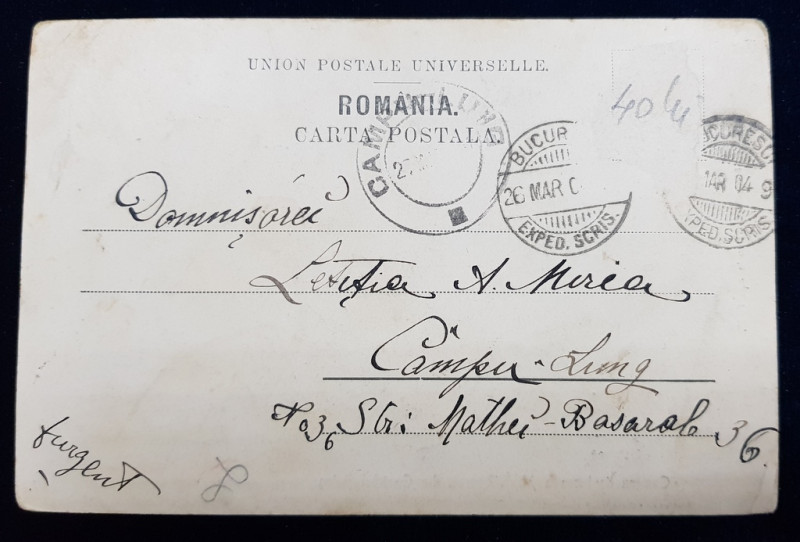 UNION POSTALE UNIVERSELLE.
ROMÂNIA.
CARTA POSTALA.
40 lei
CAMPULUNG
27
BUCUR
26 MAR 0
EXPED. SCRIS.
BUCURESCI
MAR 04 9
EXPED. SCRIS
Domnișórei
Letiția A. Mirea
Câmpu-Lung
No 36 Str: Mathei-Basarab 36.
furgent